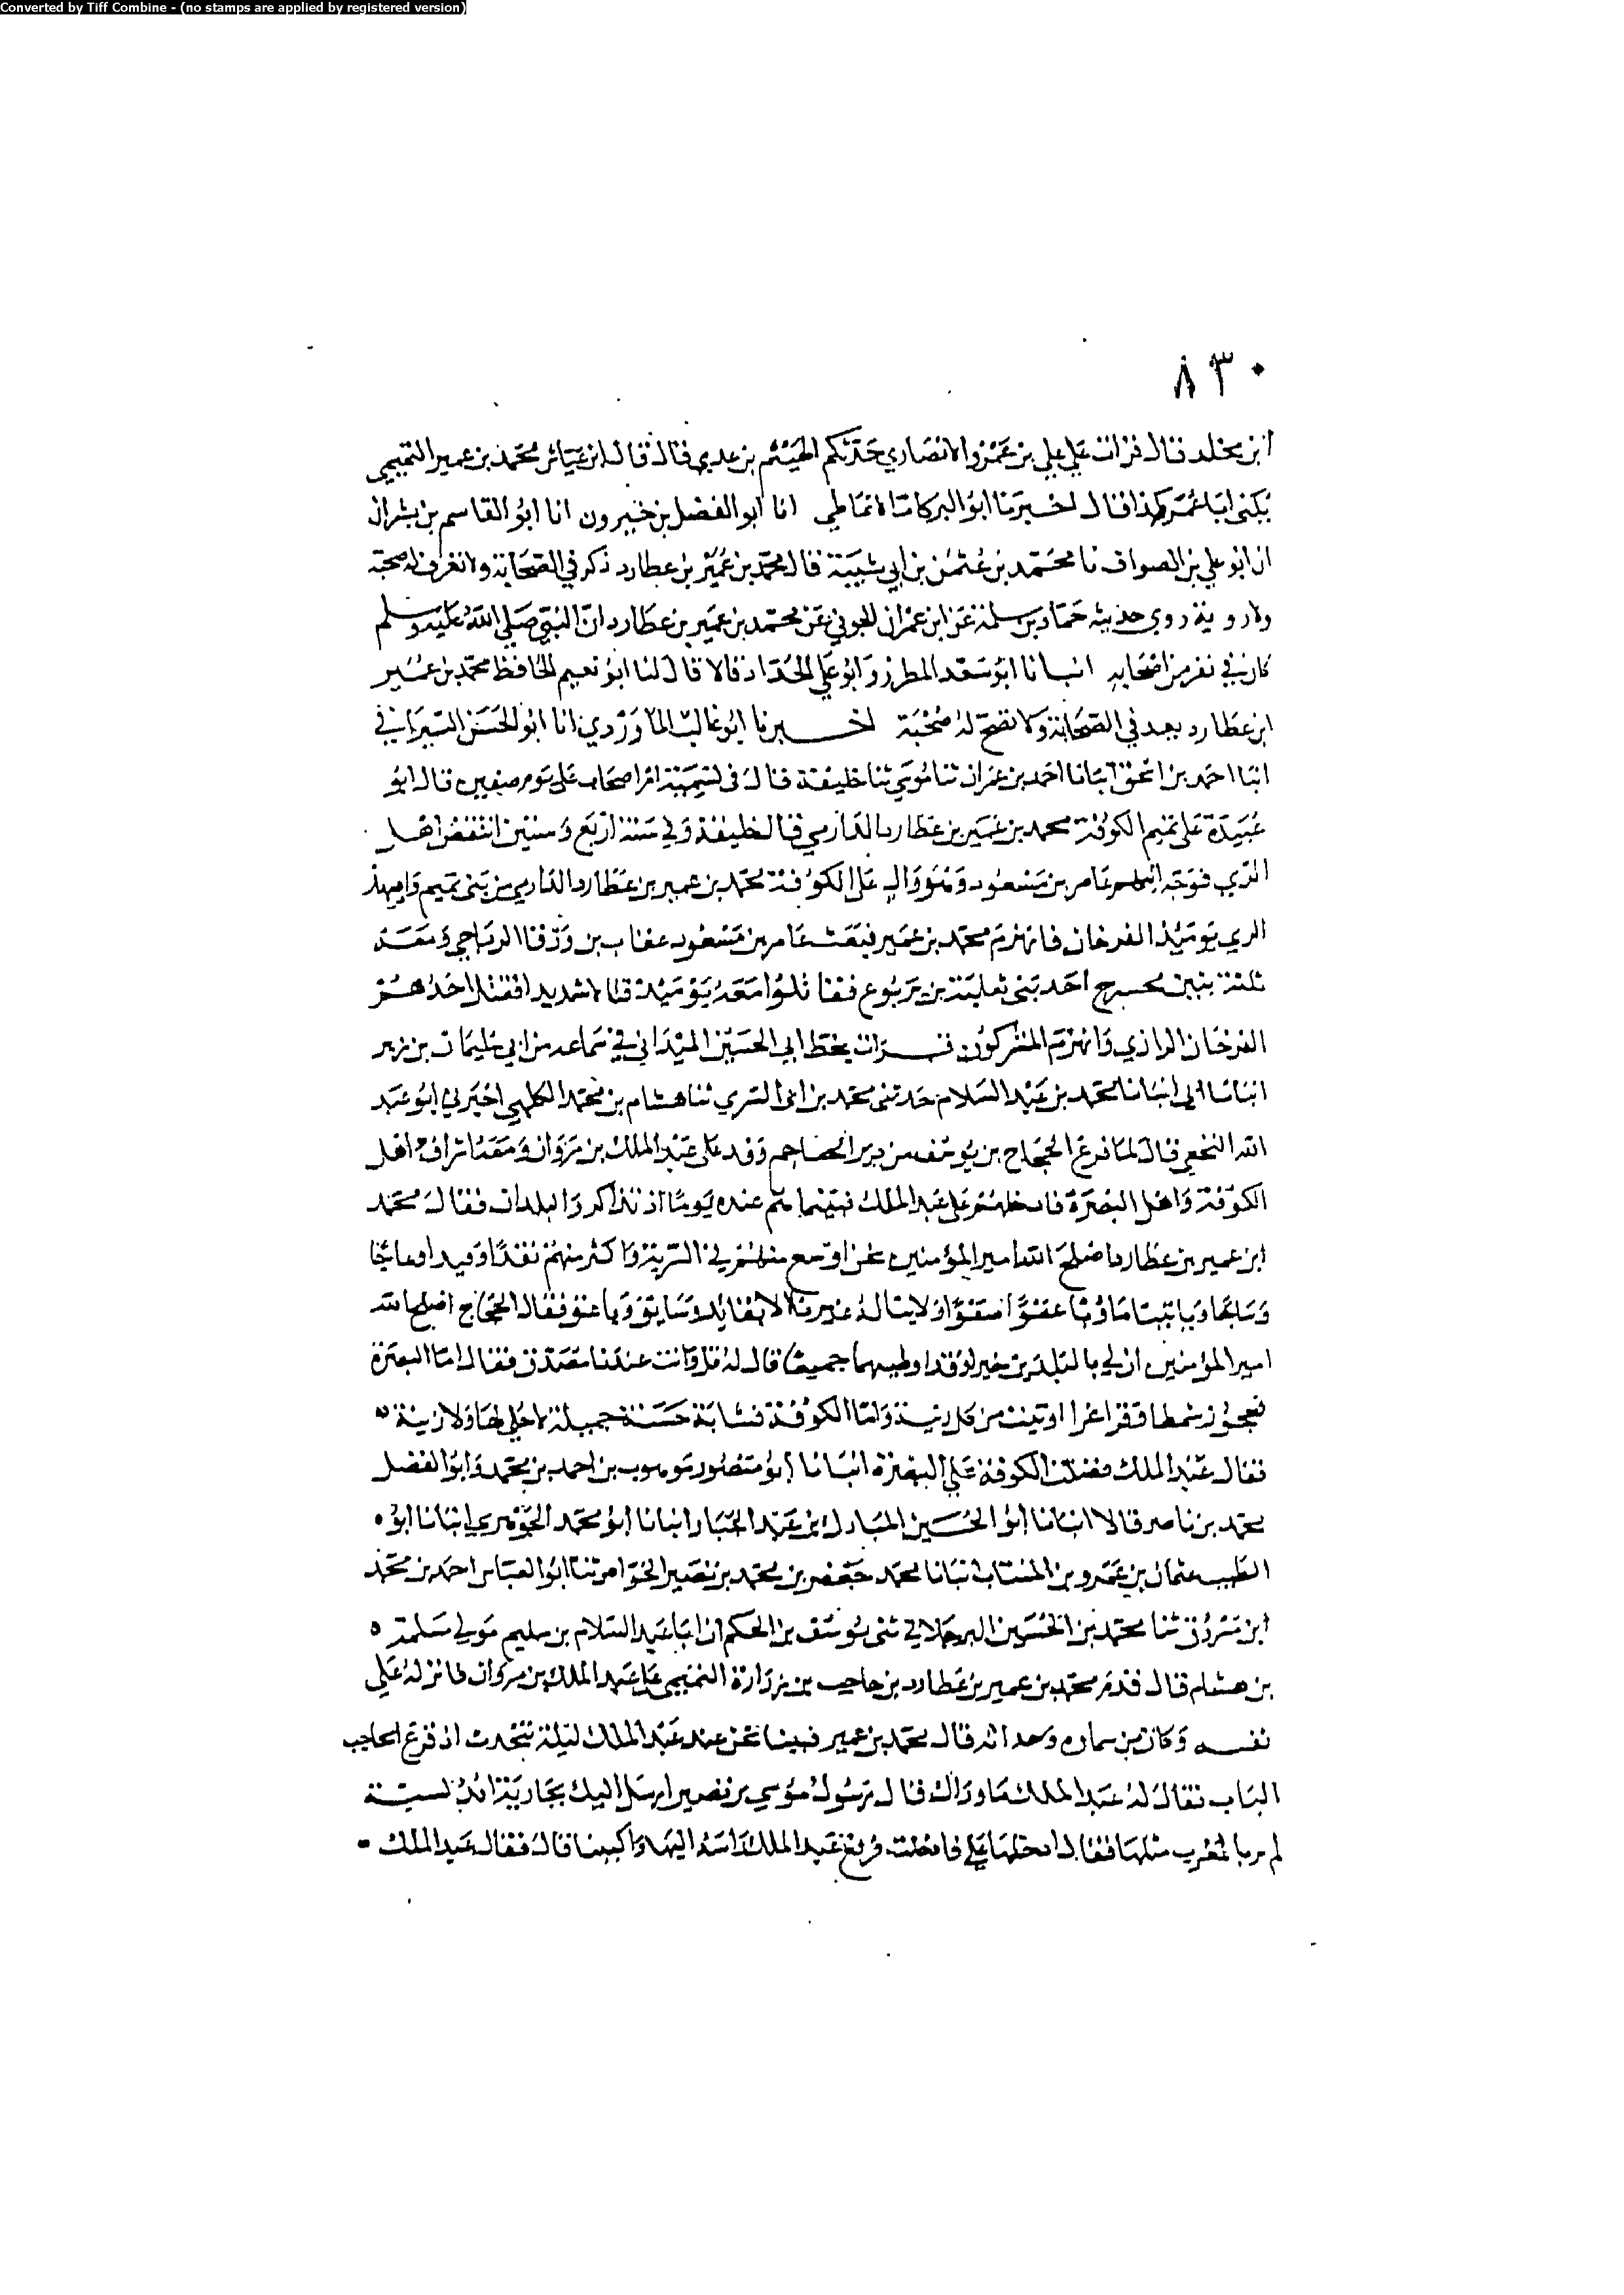 Converted by Tiff Combine - (no stamps are applied by registered version)
٨٣٠
ابن مخلد قال قرات على علي بن عمرو الانصاري حدثكم الهيثم بن عدي قال قال ابن عياش محمد بن عمير التميمي
يكنى ابا عمر كذا قال اخبرنا ابو البركات الانماطي انا ابو الفضل بن خيرون انا ابو القاسم بن بشران
انا ابو علي بن الصواف نا محمد بن عثمن بن ابي شيبة قال محمد بن عمير بن عطارد ذكر في الصحابة ولا نعرف له صحبة
ولا روية روى حديثه حماد بن سلمة عن ابن عمران الجوني عن محمد بن عمير بن عطارد ان النبي صلى الله عليه وسلم
كان في نفر من اصحابه انبانا ابو سعد المطرز وابو علي الحداد قالا قال لنا ابو نعيم الحافظ محمد بن عمير
ابن عطارد يعد في الصحابة ولا تصح له صحبة اخبرنا ابو غالب الماوردي انا ابو الحسن السيرافي
انا احمد بن اسحق انبانا احمد بن عمران ثنا موسى ثنا خليفة قال في تسمية امرا اصحاب علي يوم صفين قال ابو
عبيدة على تميم الكوفة محمد بن عمير بن عطارد الدارمي قال خليفة وفي سنة اربع وستين انتقض اهل
الري فوجه اليهم عامر بن مسعود وهو وال على الكوفة محمد بن عمير بن عطارد الدارمي من بني تميم وامير
الري يوميذ الفرخان فانهزم محمد بن عمير فبعث عامر بن مسعود عتاب بن ورقا الرياحي ومعه
ثلثة بنين احد بني ثعلبة بن يربوع فقاتلوا معه يوميذ قتالا شديدا فقتل احدهم
الفرخان الرازي وانهزم المشركون قرات بخط ابي الحسين الميداني في سماعه من ابي سليمان بن زبر
انبانا ابي انبانا محمد بن عبد السلام حدثني محمد بن ابي السري ثنا هشام بن محمد الكلبي اخبرني ابو عبد
الله النخعي قال لما فرغ الحجاج بن يوسف من دير الجماجم وفد على عبد الملك بن مروان ومعه اشراف اهل
الكوفة واهل البصرة فادخلهم على عبد الملك فبينما هم عنده يوما اذ تذاكروا البلدان فقال محمد
ابن عمير بن عطارد اصلح الله امير المؤمنين نحن اوسع منهم في البرية واكثر منهم نقدا
ويا تينا ماؤنا عفوا صفوا ولا يناله غيرنا الا بقايد وسايق وناعق فقال الحجاج اصلح الله
امير المؤمنين ان لي بالبلدين خبرا وقد وطيتهما جميعا قال له قل وانت عندنا مصدق فقال اما البصرة
فعجوز شمطا دفرا بخرا اوتيت من كل زينة واما الكوفة فشابة حسنة جميلة لا حلي لها ولا زينة
فقال عبد الملك فضلت الكوفة على البصرة انبانا ابو منصور موهوب بن احمد بن محمد وابو الفضل
محمد بن ناصر قالا انبانا ابو الحسين المبارك بن عبد الجبار انبانا ابو محمد الجوهري انبانا ابو
الطيب عثمان بن عمرو بن المنتاب انبانا محمد جعفر بن محمد بن نصير الخواص ثنا ابو العباس احمد بن محمد
ابن مسروق ثنا محمد بن الحسين البرجلاني ثني يوسف بن الحكم انا ابا عبد السلام بن سليم مولى مسلمة
بن هشام قال قدم محمد بن عمير بن عطارد بن حاجب بن زرارة التميمي على عبد الملك بن مروان فانزله على
نفسه وكان من سماره وحداثه قال محمد بن عمير فبينا نحن عند عبد الملك ليلة نتحدث اذ قرع الحاجب
الباب فقال له عبد الملك ما وراك قال رسول موسى بن نصير ارسل اليك بجارية
لم ير بالمغرب مثلها فقال ادخلها علي فادخلت فرفع عبد الملك راسه اليها قال فقال عبد الملك